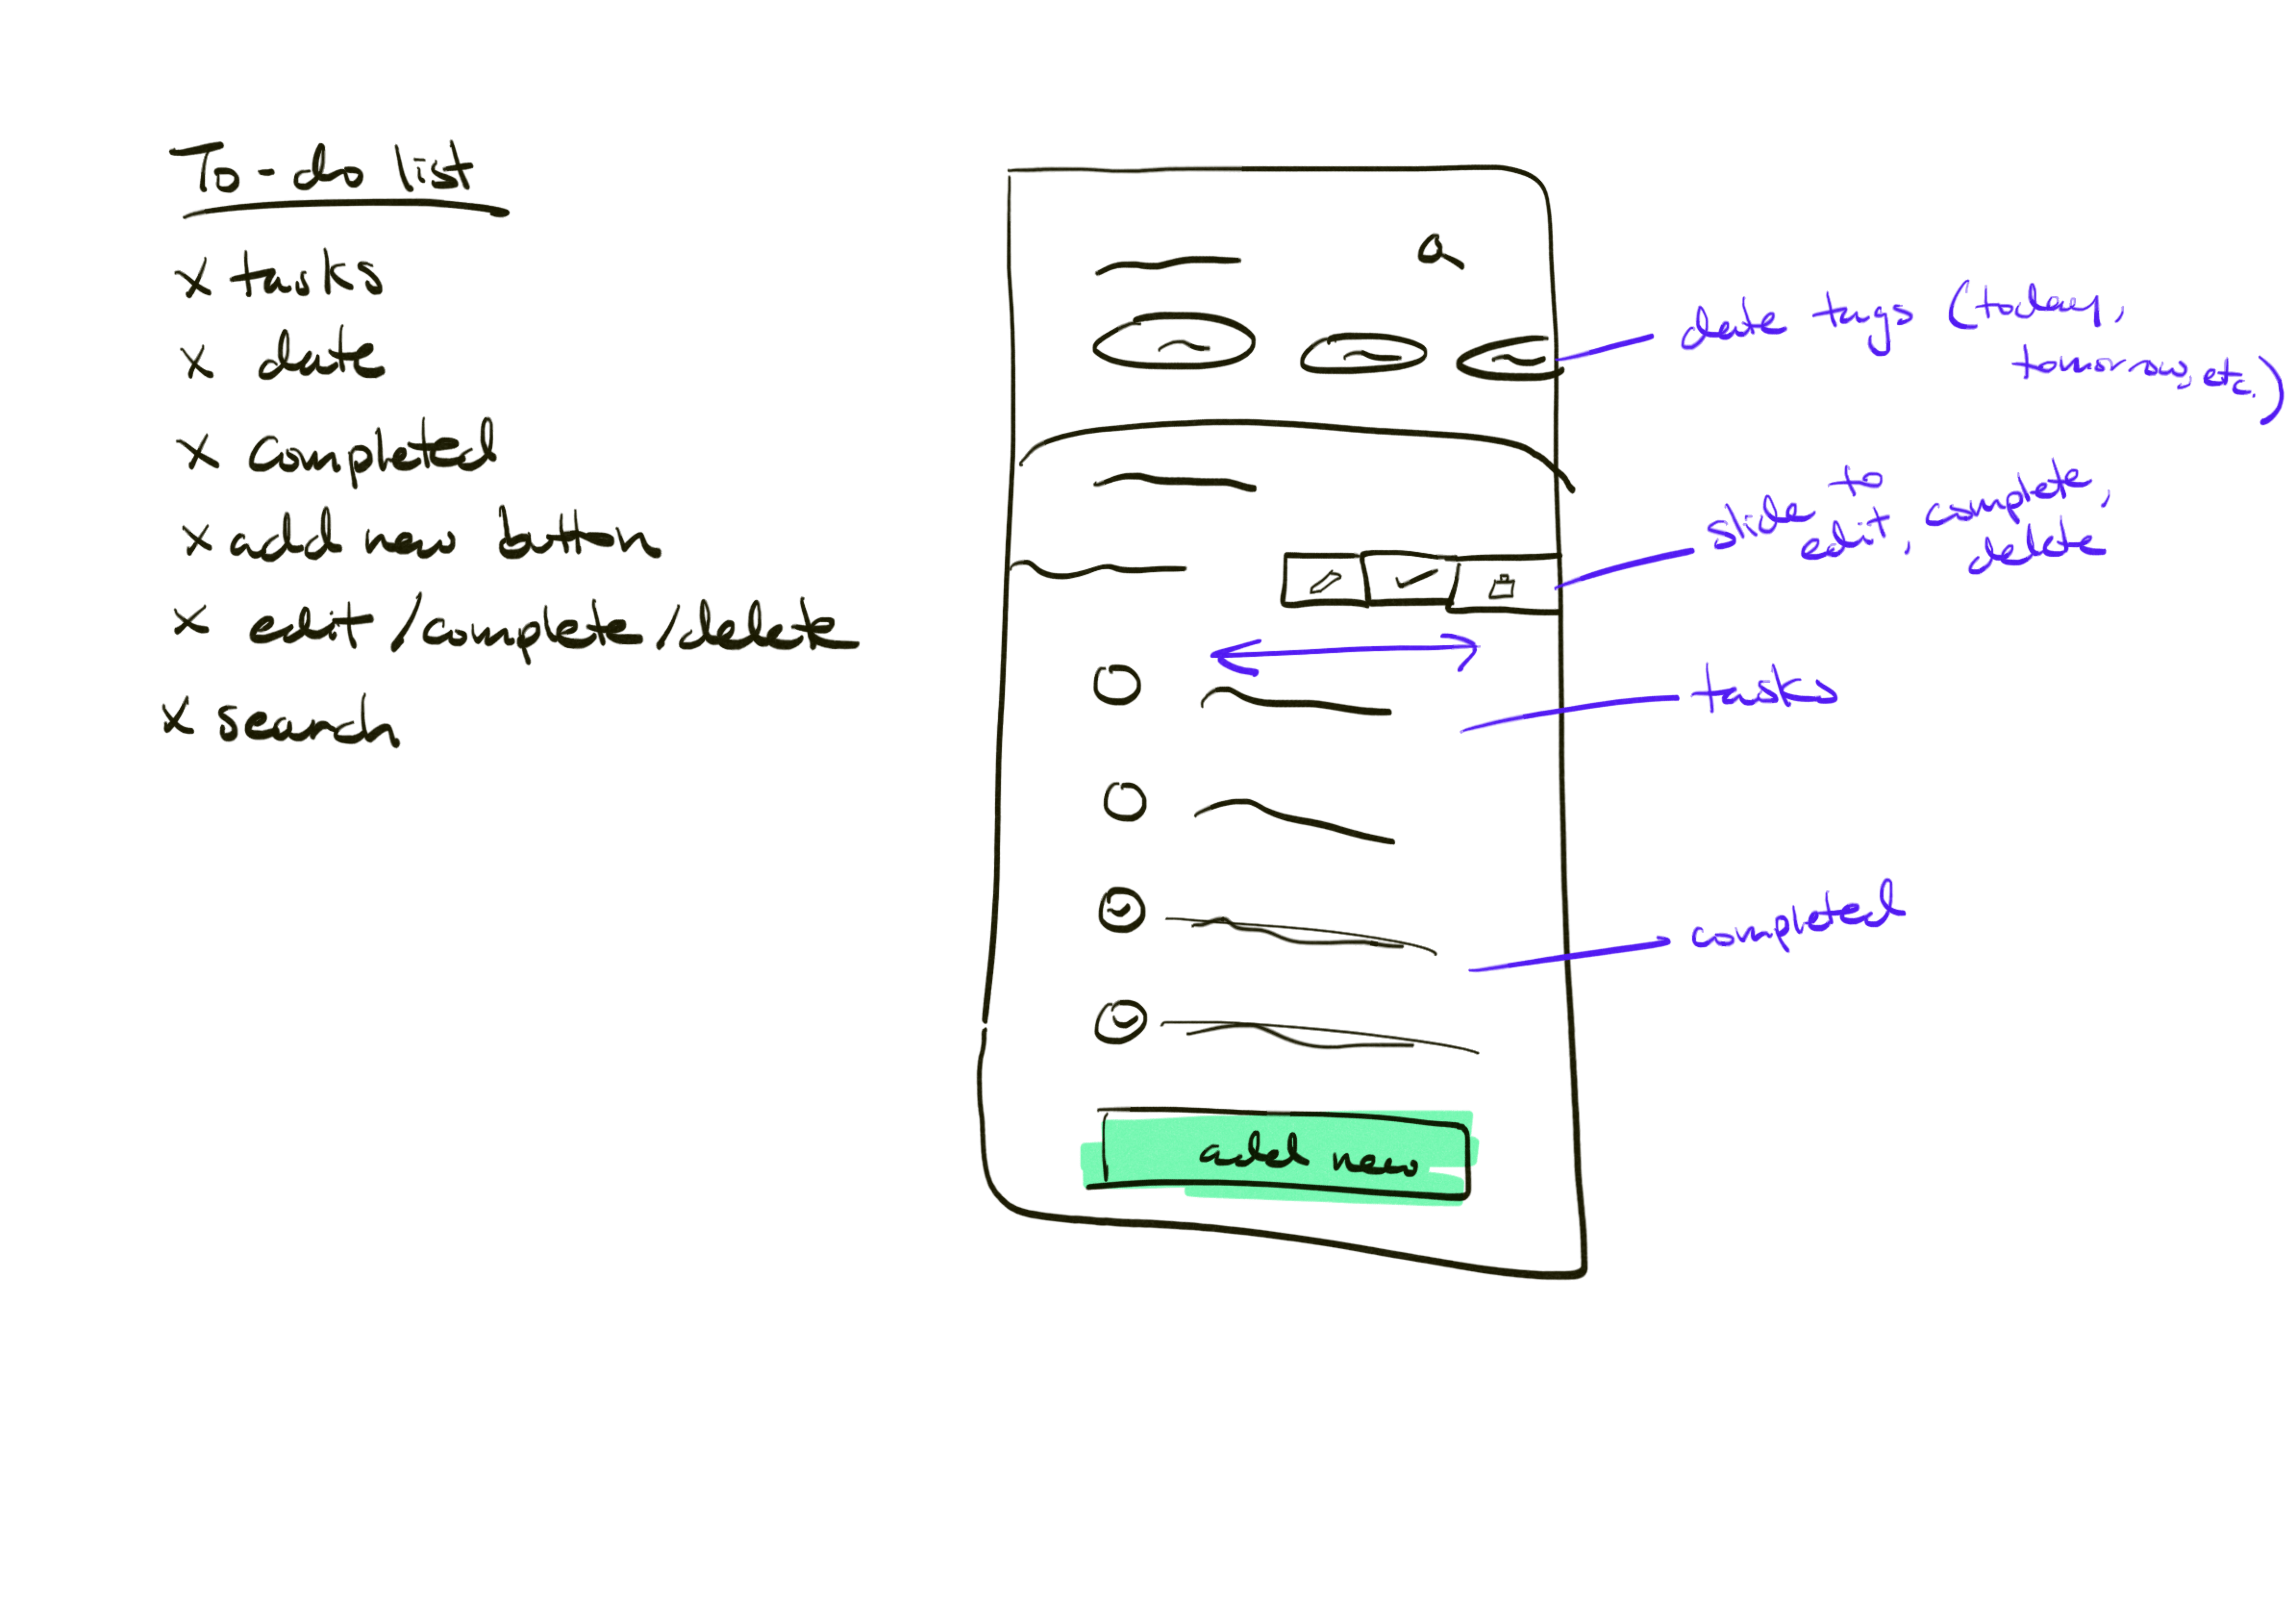 To-do list
x tasks
x date
x completed
x add new button
x edit/complete/delete
x search
date tags (today,
tomorrow, etc.)
slide to
edit, complete,
delete
tasks
completed
add new